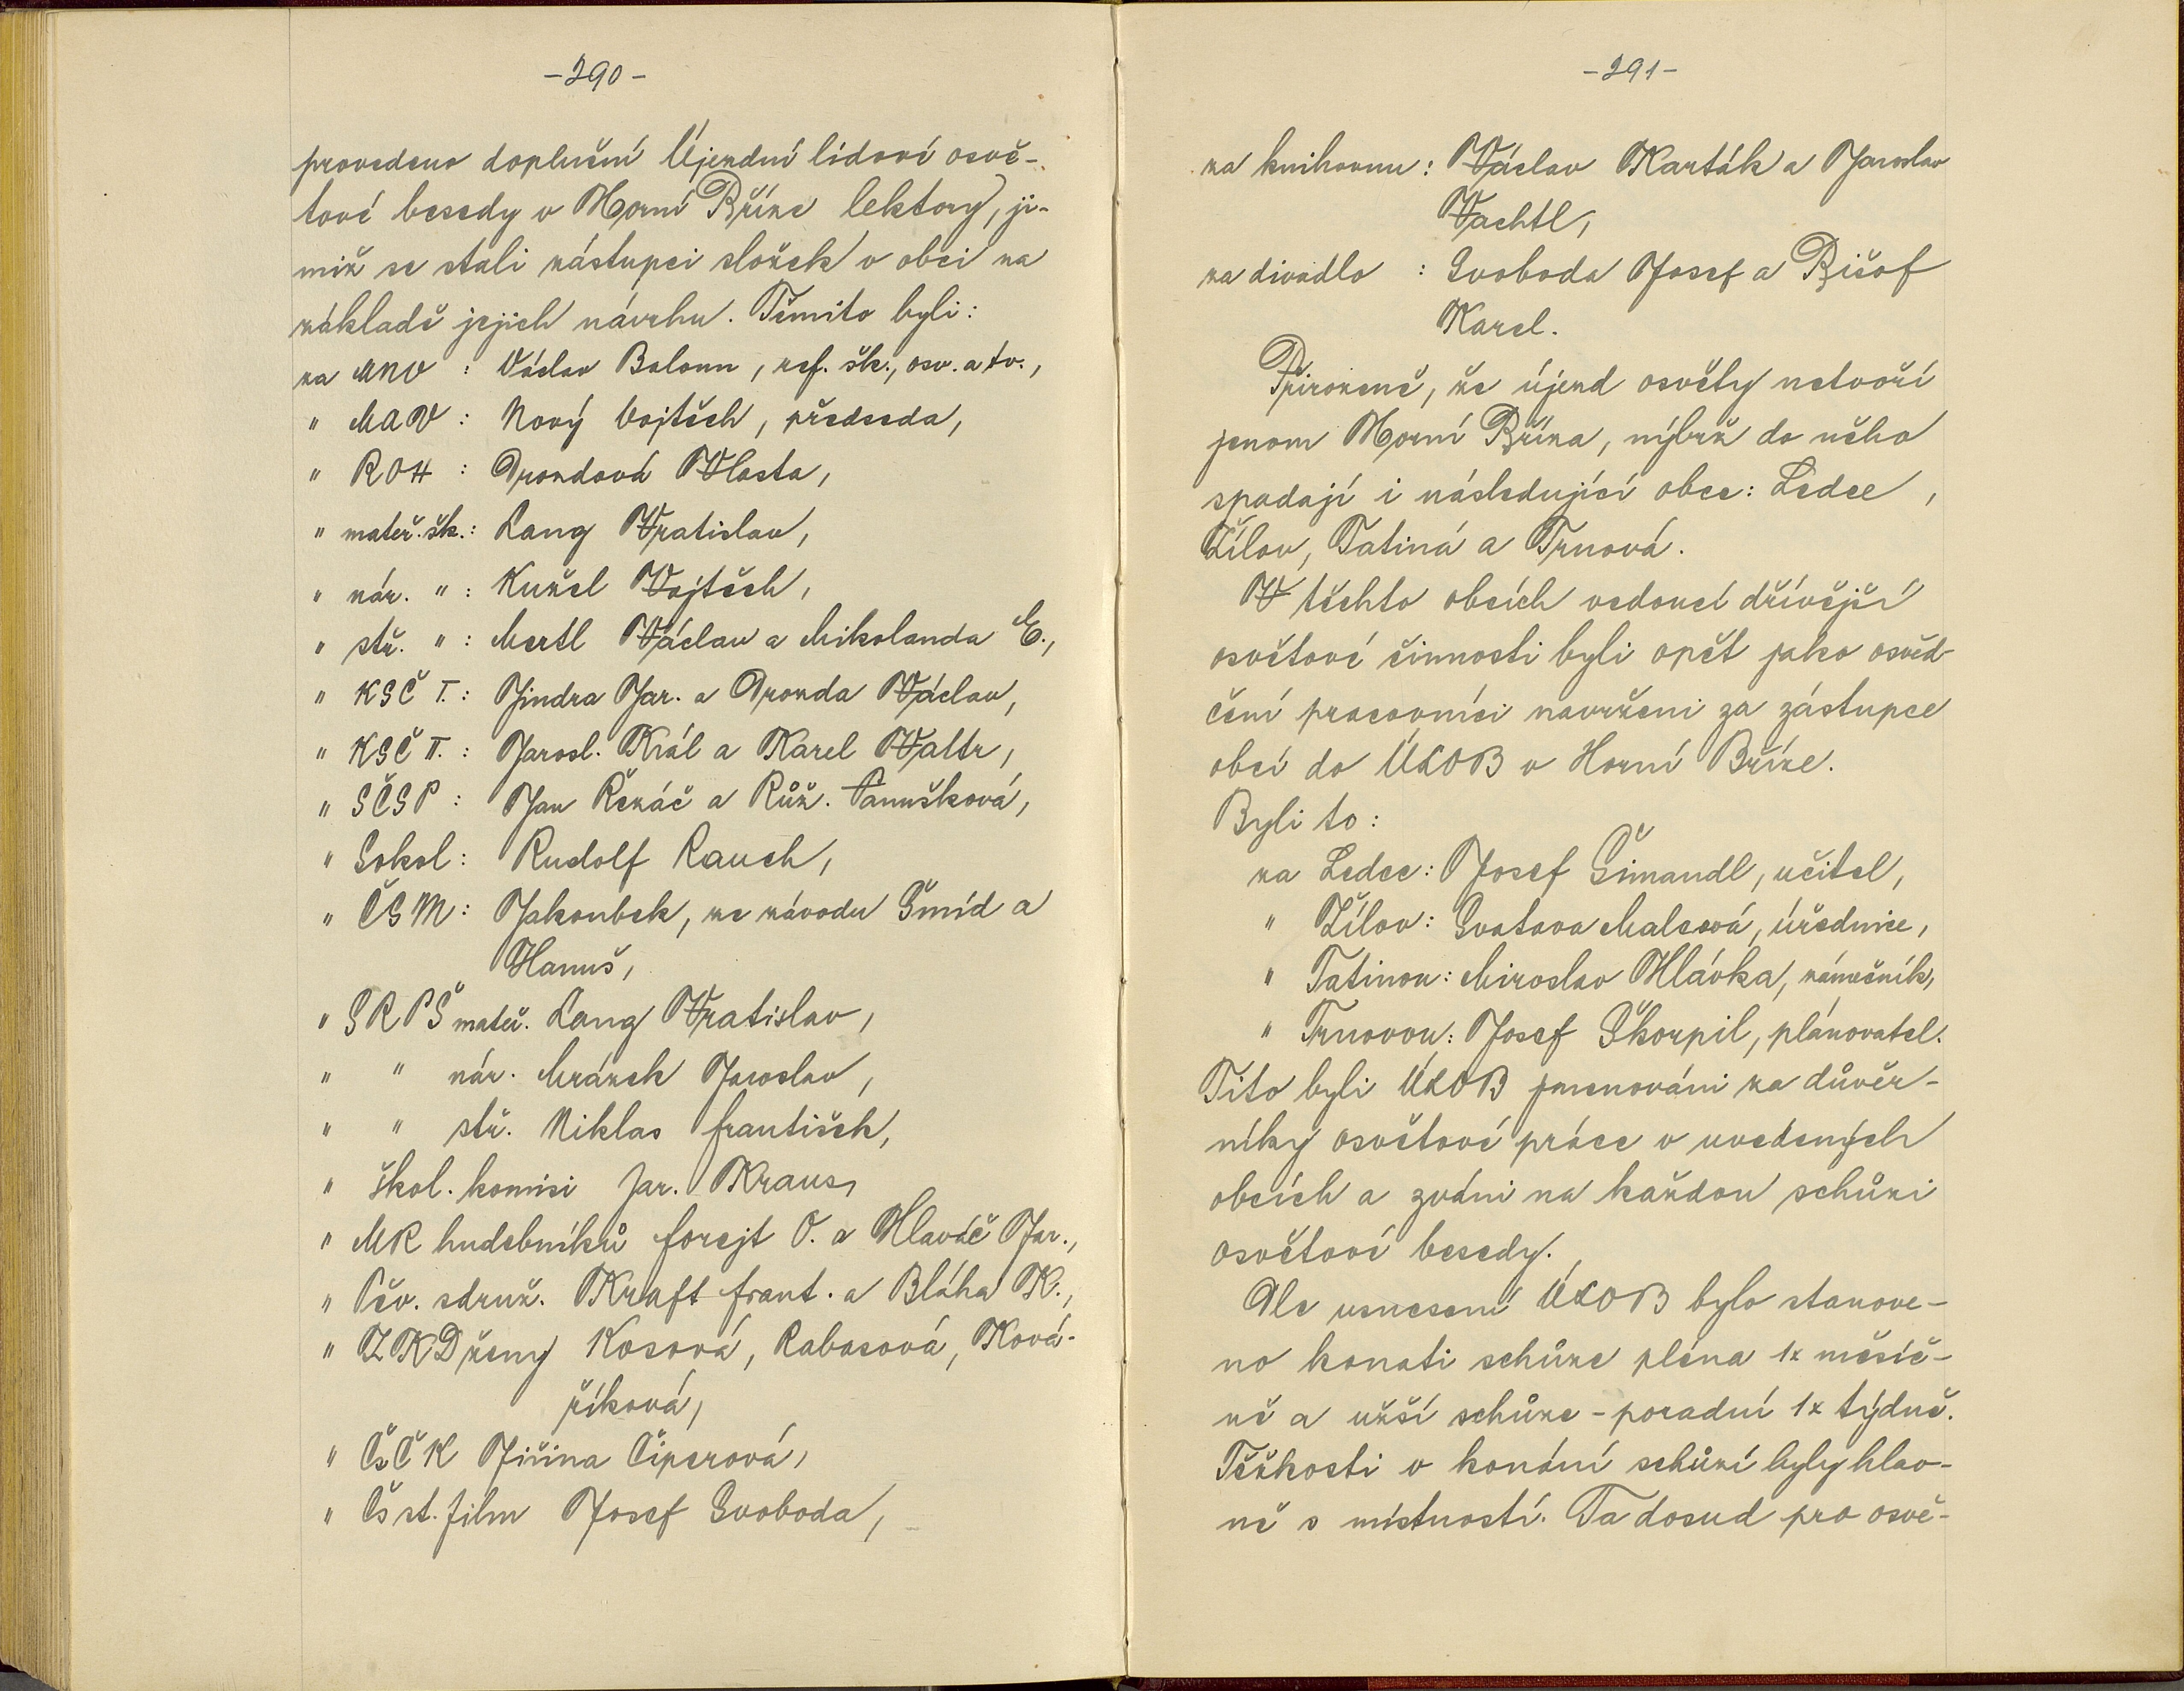 -290-
provedeno doplnění Újezdní lidové osvě-
tové besedy v Horní Bříze lektory, ji-
miž se stali zástupci složek v obci na
základě jejich návrhu. Těmito byli:
za MNV : Václav Baloun, ref. šk., osv. a tv.,
" MAV : Nový Vojtěch, předseda,
" ROH : Drozdová Vlasta,
" mateř. šk.: Lang Vratislav,
" nár. " : Kužel Vojtěch,
" stř. " : Mertl Václav a Mikolanda E.,
" KSČ I. : Jindra Jar. a Drozda Václav,
" KSČ II. : Jarosl. Král a Karel Valtr,
" SČSP : Jan Řezáč a Růž. Panušková,
" Sokol : Rudolf Rauch,
" ČSM : Jakoubek, ze závodu Šmíd a
Hanuš,
" SRPŠ mateř. Lang Vratislav,
" " nár. Mrázek Jaroslav,
" " stř. Niklas František,
" škol. komisi Jar. Kraus,
" MR hudebníků Forejt O. a Hlaváč Jar.,
" Pěv. sdruž. Kraft Frant. a Bláha K.,
" ZKD ženy Kosová, Rabasová, Ková-
říková,
" ČsČK Jiřina Čiperová,
" Čs st. film Josef Svoboda,
-291-
za knihovnu : Václav Karták a Jaroslav
Vachtl,
za divadlo : Svoboda Josef a Bišof
Karel.
Přirozeně, že újezd osvěty netvoří
jenom Horní Bříza, nýbrž do něho
spadají i následující obce: Ledce,
Žilov, Tatiná a Trnová.
V těchto obcích vedoucí dřívější
osvětové činnosti byli opět jako osvěd-
čení pracovníci navrženi za zástupce
obcí do ÚLOB v Horní Bříze.
Byli to:
za Ledce: Josef Šimandl, učitel,
" Žilov: Svatava Malcová, úřednice,
" Tatinou: Miroslav Hlávka, zámečník,
" Trnovou: Josef Škorpil, plánovatel.
Tito byli ÚLOB jmenováni za důvěr-
níky osvětové práce v uvedených
obcích a zváni na každou schůzi
osvětové besedy.
Dle usnesení ÚLOB bylo stanove-
no konati schůze pléna 1x měsíč-
ně a užší schůze - poradní 1x týdně.
Těžkosti v konání schůzí byly hlav-
ně s místností. Ta dosud pro osvě-